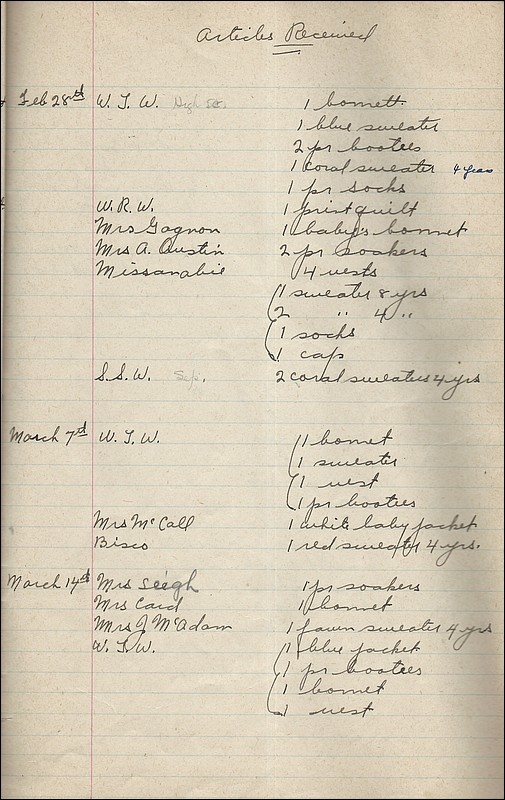 Articles Received
Feb 28th W. I. W. 1 bonnett
1 blue sweater
2 pr bootees
1 coral sweater 4 years
1 pr socks
W. R. W. 1 print quilt
Mrs Gagnon 1 baby's bonnet
Mrs A. Austin 2 pr soakers
Missanabie 4 vests
1 sweater 8 yrs
2 " 4 "
1 socks
1 cap
S. S. W. 2 coral sweaters 4 yrs
March 7th W. I. W. 1 bonnet
1 sweater
1 vest
1 pr bootees
Mrs McCall 1 white baby jacket
Bisco 1 red sweater 4 yrs.
March 14th Mrs 1 pr soakers
Mrs Card 1 bonnet
Mrs J McAdam 1 fawn sweater 4 yrs
W. I. W. 1 blue jacket
1 pr bootees
1 bonnet
1 vest